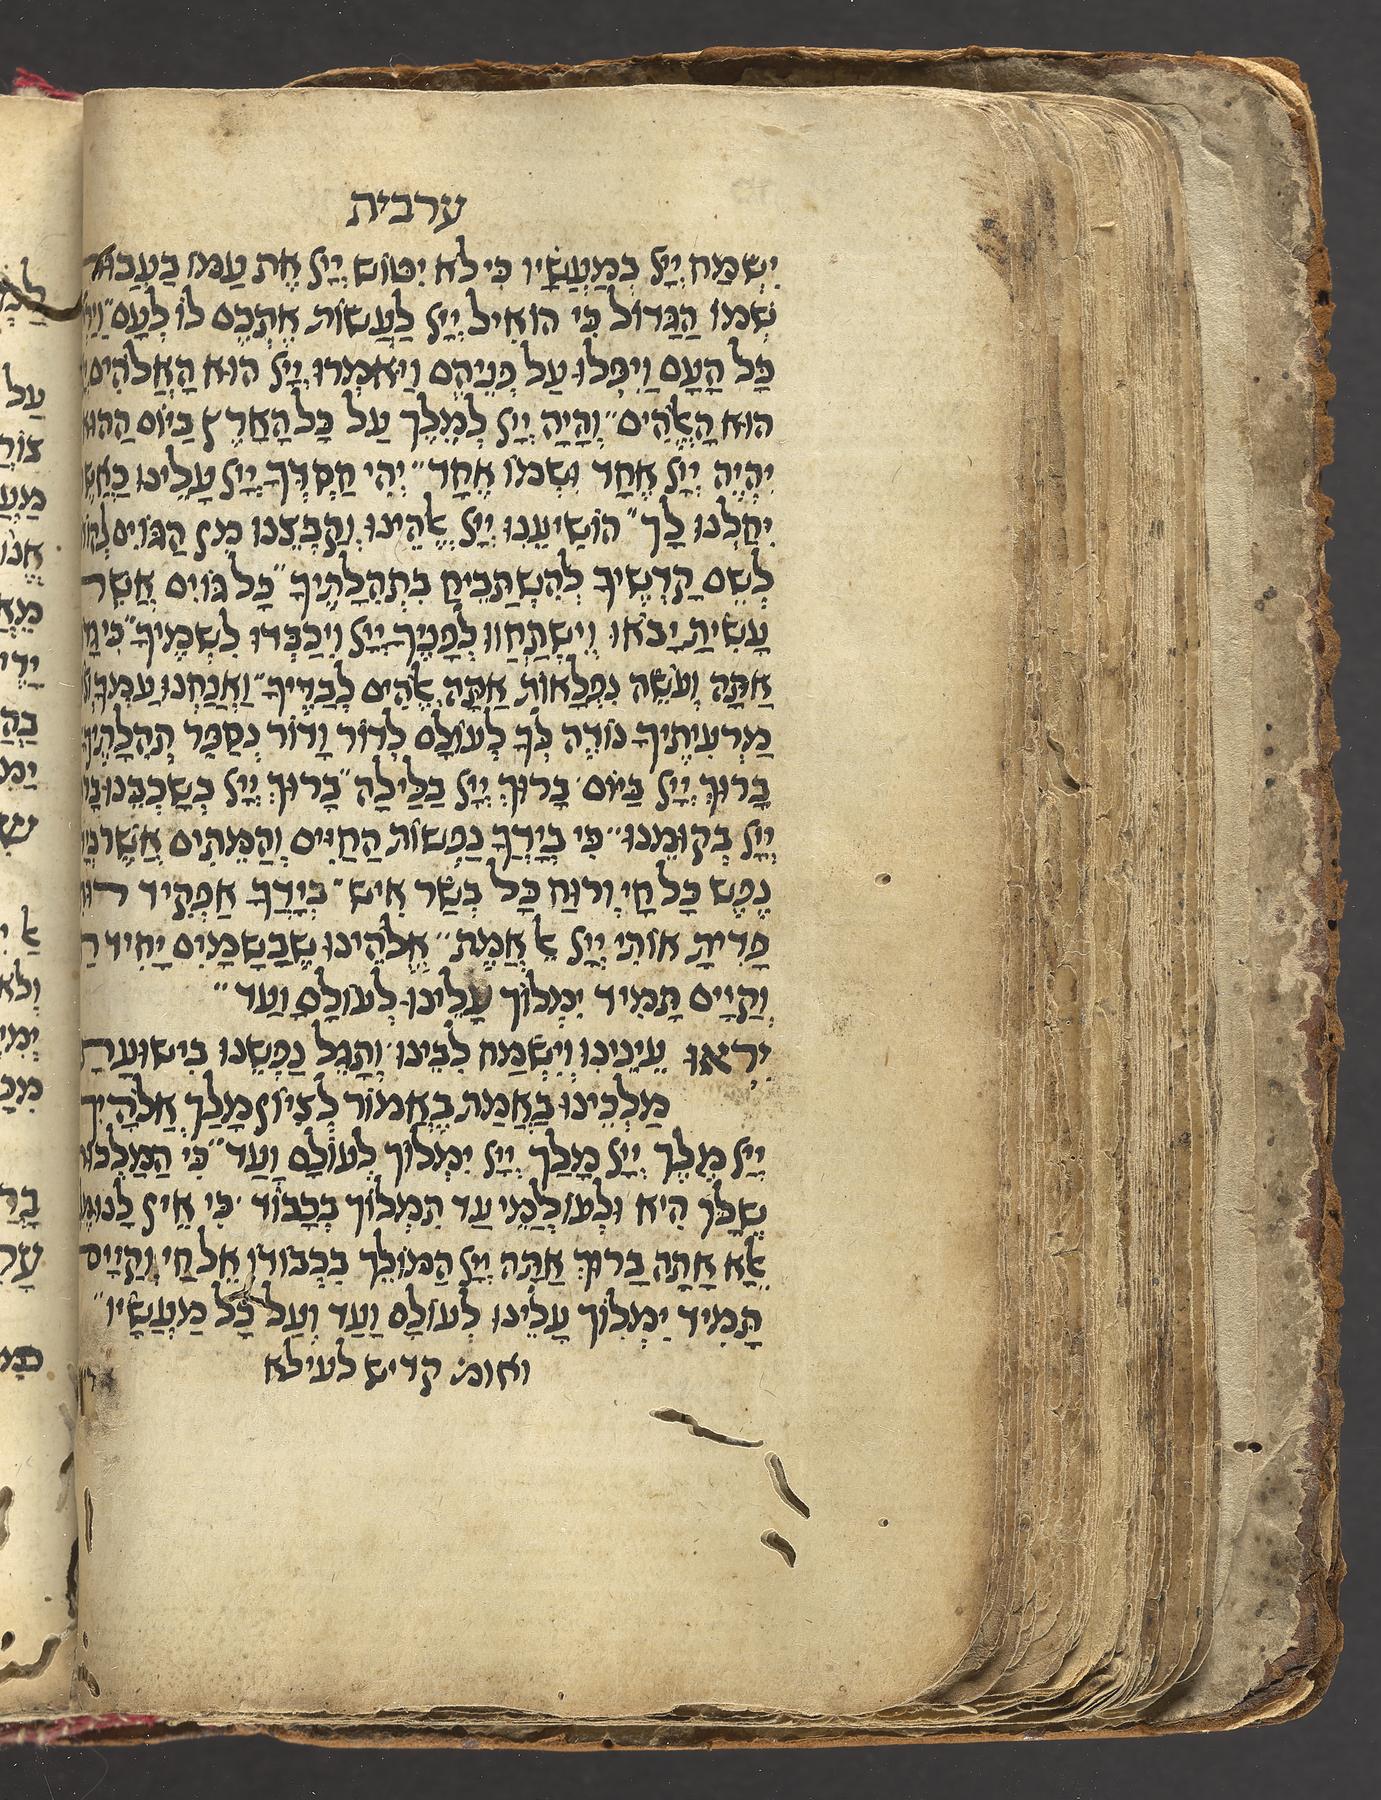 ערבית
יִשְמַח יְיָ֒ בְמַעֲשָיו כִי לֹא יִטוֹש יְיָ֒ אֶת עַמּוֹ בַעֲבוּר
שְמוֹ הַגָּדוֹל כִּי הוֹאִיל יְיָ֒ לַעֲשׂוֹת אֶתְכֶם לוֹ לְעָם״
כָּל הָעָם וַיִפְלוּ עַל פְּנֵיהֶם וַיֹאמְרוּ יְיָ֒ הוּא הָאֱלֹהִים
הוּא הָאֱהִים״ וְהָיָה יְיָ֒ לְמֶלֶךְ עַל כָּל הָאַרֶץ בַיוֹם הַהוּא
יִהְיֶה יְיָ֒ אֶחָד וּשְמוֹ אֶחָד״ יְהִי חַסְדְךָ יְיָ֒ עָלֵינוּ כַאֲשֶ
יִחַלְנוּ לָךְ״ הוֹשִיעֵנוּ יְיָ֒ אֱהֵינוּ וְקַבְצֵנוּ מִן הַגּוֹיִם
לְשֵם קָדְשֶיךָ לְהִשְתַבֵּיחַ בִּתְהִלָתֶיךָ״ כָּל גּוֹיִם אֲשֶר
עָשִיתָ יָבֹאוּ וְיִשְתַחֲווּ לְפָנֶיךָ יְיָ֒ וִיכַבְּדוּ לִשְמֶיךָ״ כִי
אַתָּה וְעֹשֵה נִפְלָאוֹת אַתָּה אֱהִים לְבַדֶיךָ״ וַאֲנַחְנוּ עַמְךָ
מַרְעִיתֶיךָ נוֹדֶה לְךָ לְעוֹלָם לְדוֹר וָדוֹר נְסַפֵּר תְהִלָתֶיךָ
בָּרוּךְ יְיָ֒ בַּיוֹם׳ בָּרוּךְ יְיָ֒ בַלַּיְלָה״ בָּרוּךְ יְיָ֒ בְשָכְבֵנוּ
יְיָ֒ בְּקוּמֵנוּ״ כִּי בְיָדְךָ נַפְשוֹת הַחַיִּים וְהַמֵתִים אֲשֶר
נֶפֶש כָּל חָי וְרוּחַ כָּל בְּשַר אִיש״ בְּיָדְךָ אַפְקִיד
פָּדִיתָ אוֹתִי יְיָ֒ אֵ אֱמֶת״ אֱלֹהֵינוּ שֶבַשָמַיִם יָחִיד
וְקַיָים תָמִיד יִמְלוֹךְ עָלֵינוּ לְעוֹלָם וָעַד״
יִרְאוּ עֵינֵינוּ וְיִשְמַח לִבֵּינוּ וְתָגֵל נַפְשֵנוּ בִישוּעָת
מַלְכֵינוּ בֶאֱמַת בֶּאֱמוֹר לְצִיוֹן מָלַךְ אֱלֹהָיִךְ
יְיָ֒ מֶלֶךְ יְיָ֒ מָלַךְ יְיָ֒ יִמְלוֹךְ לְעוֹלָם וָעַד״ כִּי הַמַּלְכוּת
שֶלְּךָ הִיא וּלְעוֹלְמֵי עַד תִמְלוֹךְ בְּכָבוֹד׳ כִּי אֵין לָנוּ
אֶלָא אָתָּה בָרוּךְ אַתָּה יְיָ֒ הַמּוֹלֵךְ בִּכְבוֹדוֹ אֵל חַי וְקַיָים
תָּמִיד יִמְלוֹךְ עָלֵינוּ לְעוֹלָם וָעַד וְעַל כָּל מַעֲשָיו״
ואומ׳ קדיש לעילא